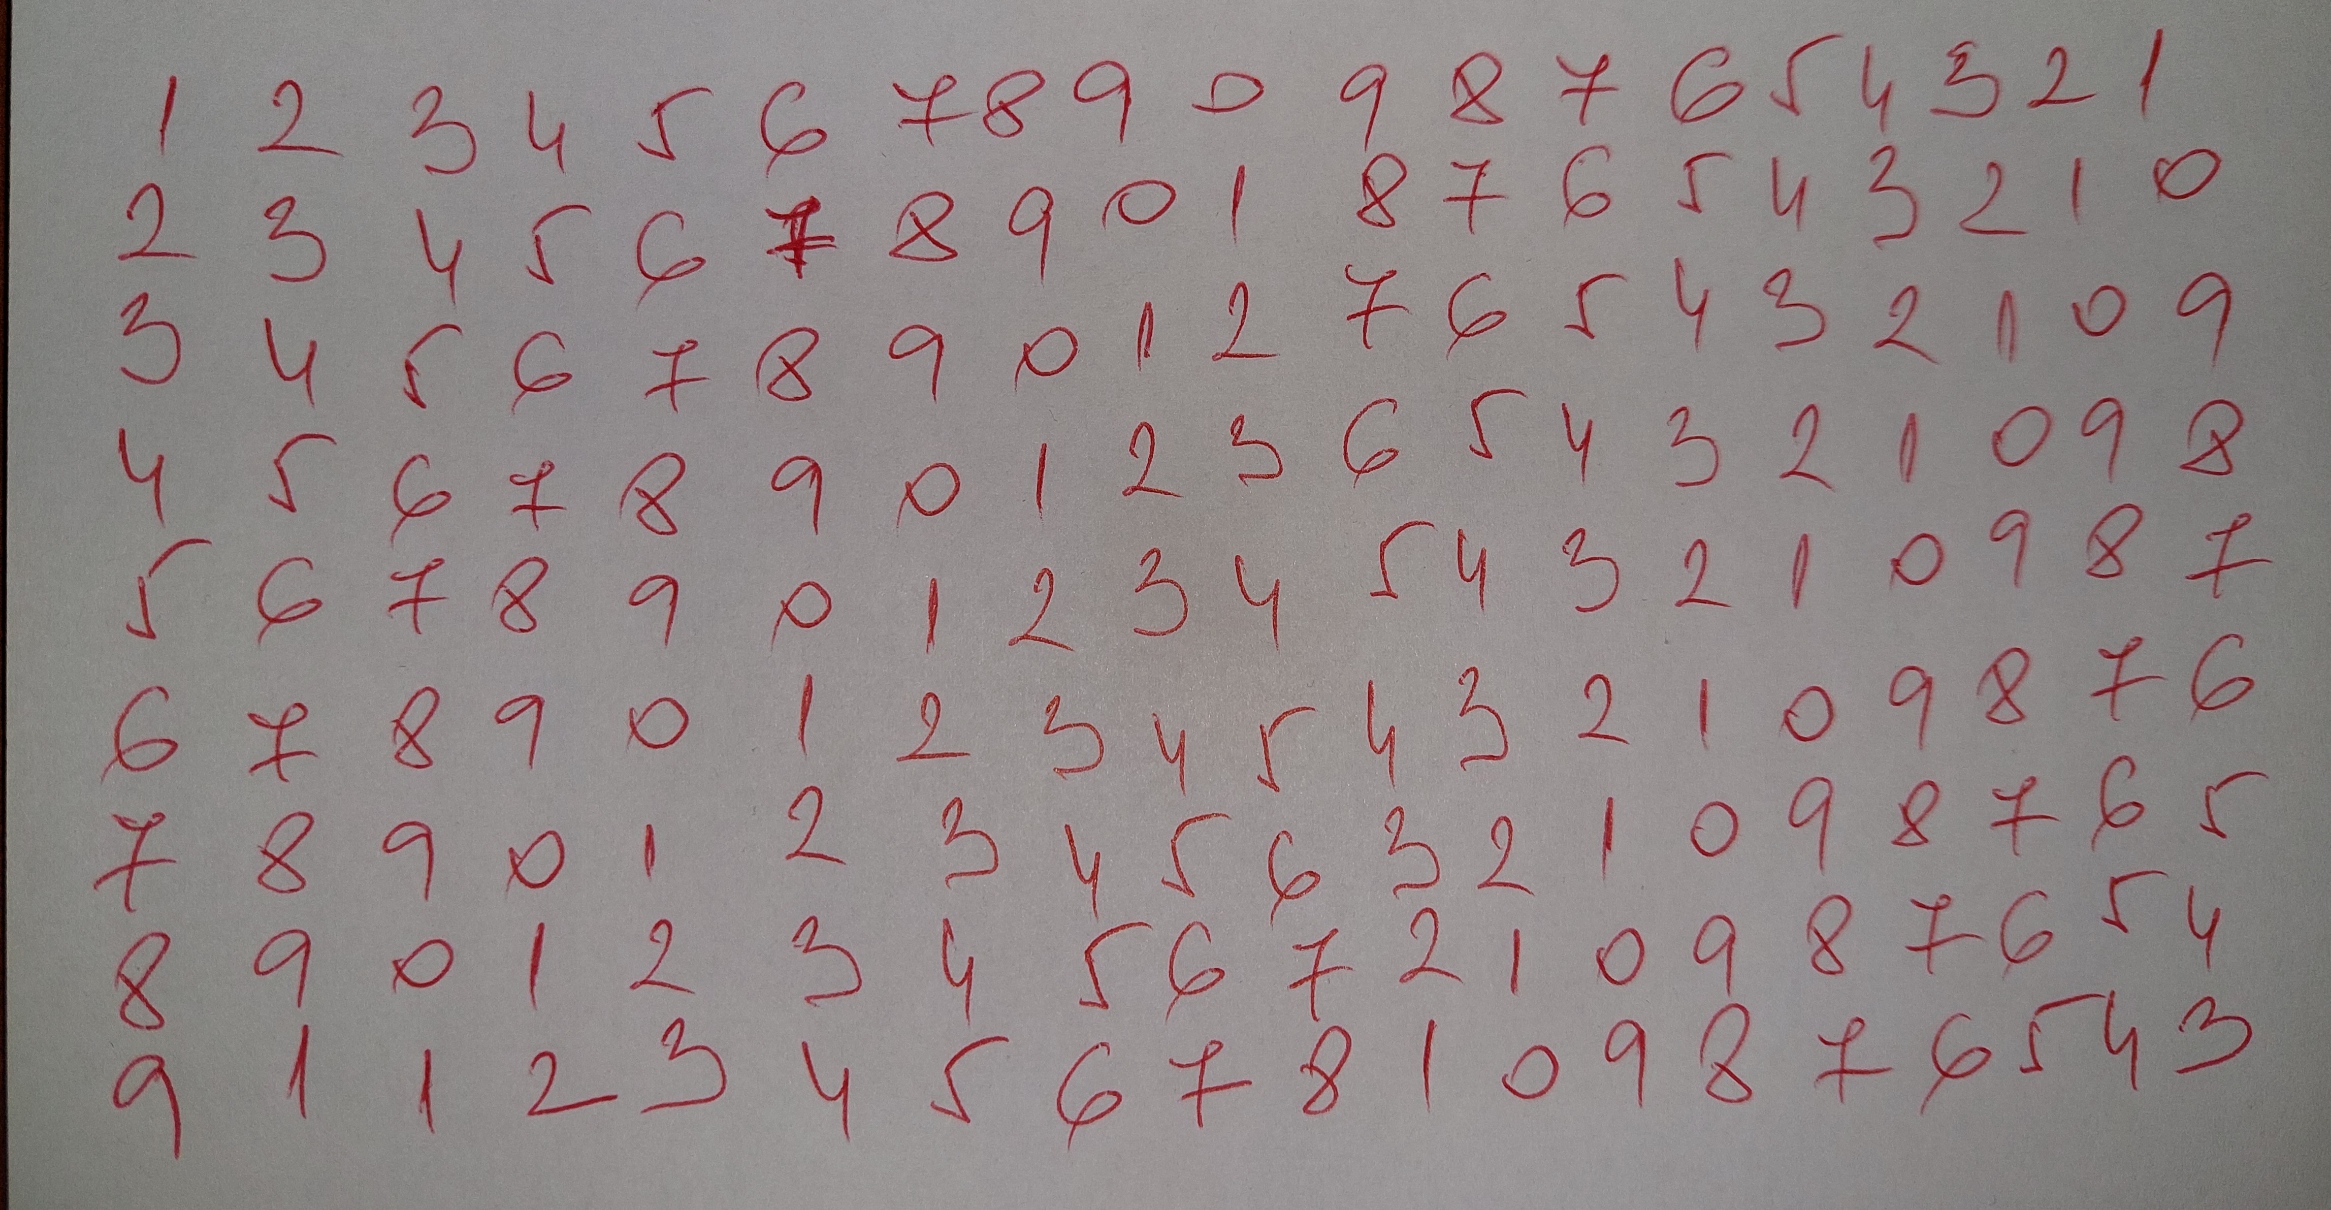 1 2 3 4 5 6 7 8 9 0 9 8 7 6 5 4 3 2 1
2 3 4 5 6 7 8 9 0 1 8 7 6 5 4 3 2 1 0
3 4 5 6 7 8 9 0 1 2 7 6 5 4 3 2 1 0 9
4 5 6 7 8 9 0 1 2 3 6 5 4 3 2 1 0 9 8
5 6 7 8 9 0 1 2 3 4 5 4 3 2 1 0 9 8 7
6 7 8 9 0 1 2 3 4 5 4 3 2 1 0 9 8 7 6
7 8 9 0 1 2 3 4 5 6 3 2 1 0 9 8 7 6 5
8 9 0 1 2 3 4 5 6 7 2 1 0 9 8 7 6 5 4
9 1 1 2 3 4 5 6 7 8 1 0 9 8 7 6 5 4 3